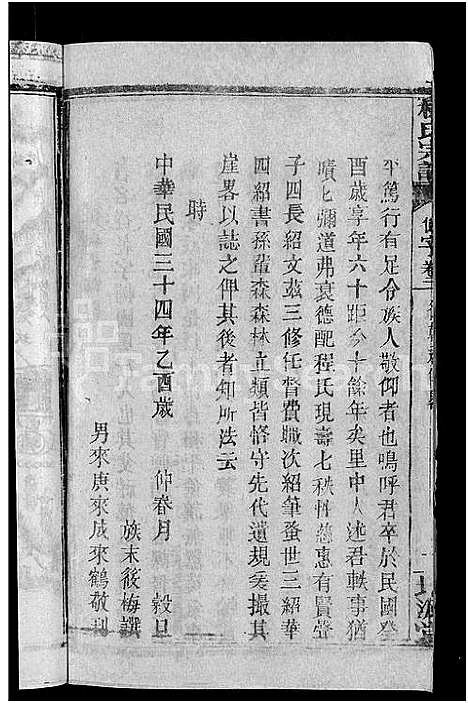 平篤行有足令族人敬仰者也嗚呼君卒於民國癸
酉歲享年六十距今十餘年矣里中人述君軼事猶
嘖七彌道弗衰德配程氏現壽七秩性慈惠有賢聲
子四長紹文茲三修任督費職次紹筆蚤世三紹華
四紹書孫輩森森林立類皆恪守先代遺規爰撮其
崖畧以誌之俾其後者知所法云
時
中華民國三十四年乙酉歲 仲春月 穀旦
族末後梅譔
男來庚來咸來鶴敬刋